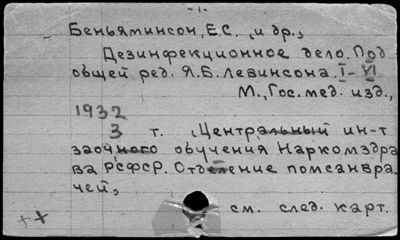 - 1 -
Беньяминсон, Е.С., и др.,
Дезинфекционное дело. Под
общей ред. Я.Б. Левинсона. I-VI
М., Гос. мед. изд.,
1932
3 т. (Центральный ин-т
заочного обучения Наркомздра
ва РСФСР. Отделение помсанвра-
чей,
см. след. карт.